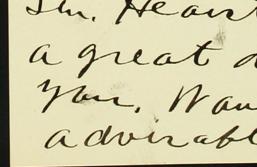 Sen. Hearst
a great d
you, Wan
advisabl